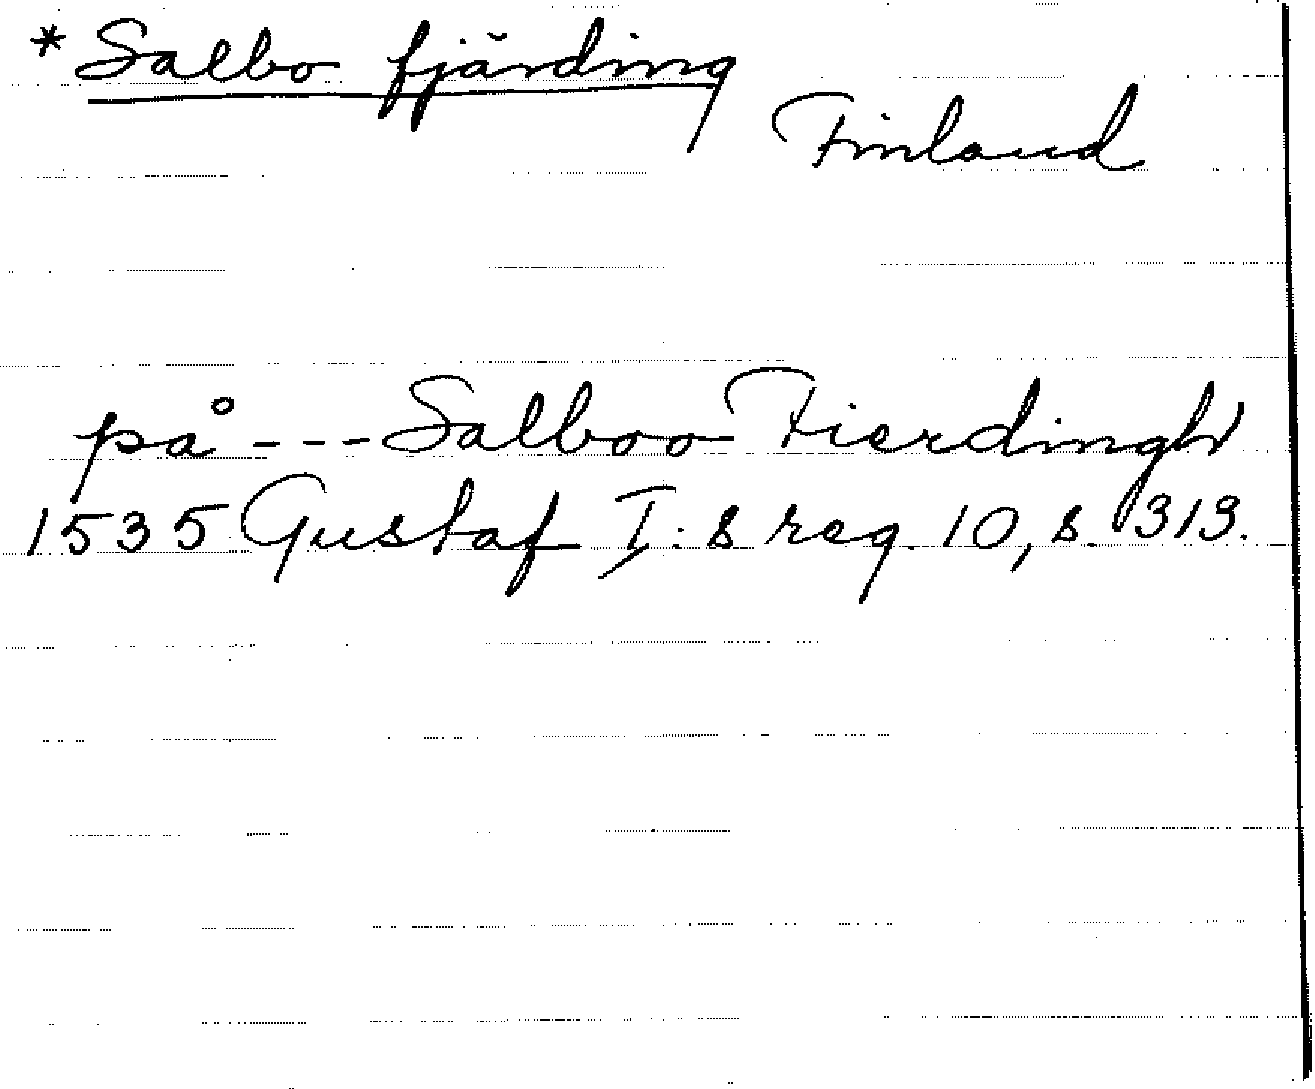 * Salbo fjärding
Finland
på --- Salboo Fierdingh
1535 Gustaf I:s reg. 10, s. 313.